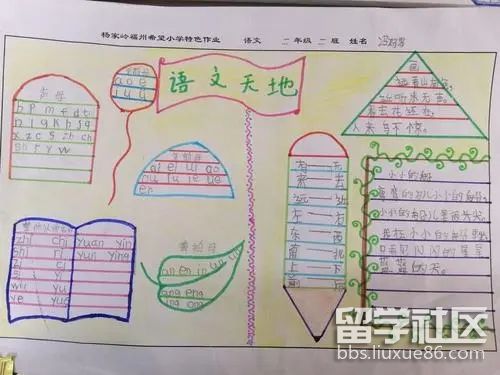 杨家岭福州希望小学特色作业 语文 二年级二班 姓名
语文天地
声母
b p m f d t
n l g k h j q
x z c s zh ch
sh r y w
单韵母
a o e
i u ü
复韵母
ai ei ui ao
ou iu ie üe
er
整体认读音节
zhi chi yuan yin
shi ri yun ying
zi ci
si yi
wu yu
ye yue
鼻韵母
an en in un ün
ang eng
ing ong
有 无
来 去
远 近
左 右
东 西
南 北
上 下
前 后
画
远看山有色，
近听水无声。
春去花还在，
人来鸟不惊。
小小的船
弯弯的月儿小小的船，
小小的船儿两头尖。
我在小小的船里坐，
只看见闪闪的星星
蓝蓝的天。
留学社区
bbs.liuxue86.com